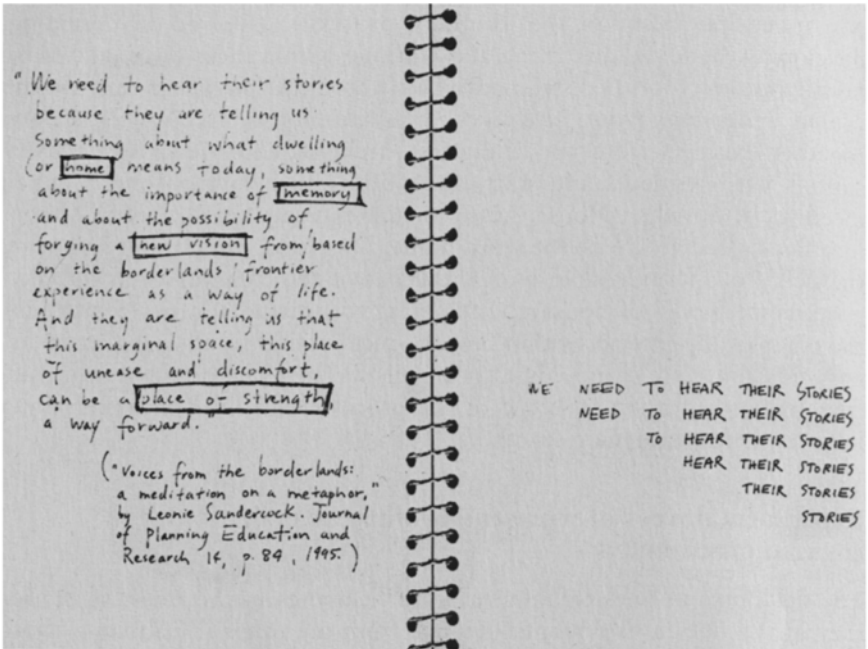 "We need to hear their stories
because they are telling us
something about what dwelling
(or home) means today, something
about the importance of memory
and about the possibility of
forging a new vision from/based
on the borderlands/frontier
experience as a way of life.
And they are telling us that
this marginal space, this place
of unease and discomfort,
can be a place of strength,
a way forward."
("Voices from the borderlands:
a meditation on a metaphor,"
by Leonie Sandercock. Journal
of Planning Education and
Research 14, p. 84, 1995.)
WE NEED TO HEAR THEIR STORIES
NEED TO HEAR THEIR STORIES
TO HEAR THEIR STORIES
HEAR THEIR STORIES
THEIR STORIES
STORIES